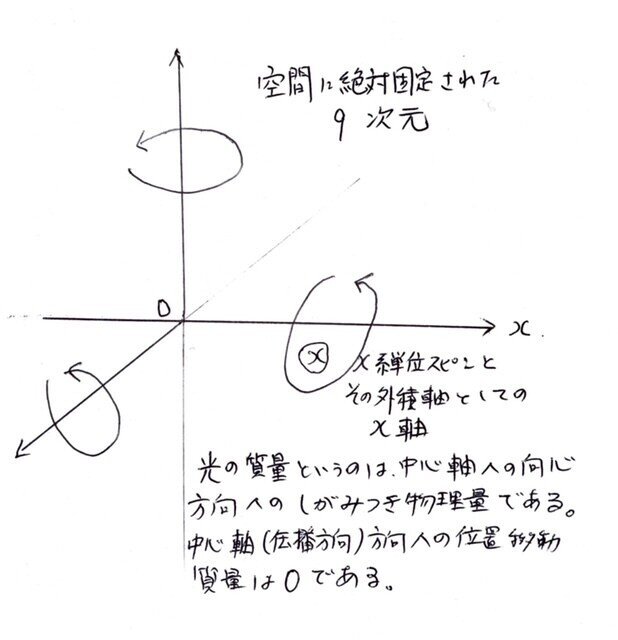 空間に絶対固定された
9 次元
0
x
x
x系単位スピンと
その外積軸としての
x軸
光の質量というのは、中心軸への向心
方向へのしがみつき物理量である。
中心軸(伝播方向)方向への位置移動
質量は0である。